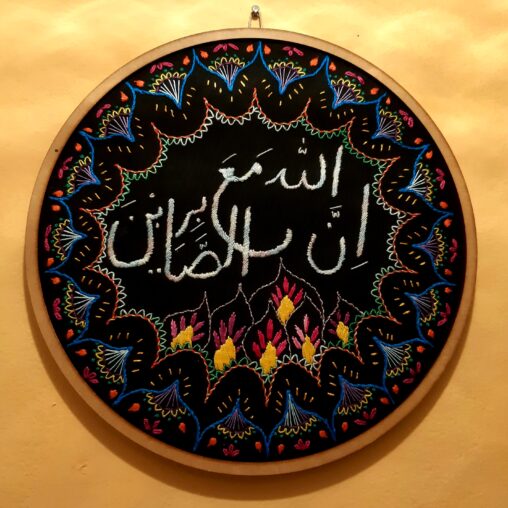 إنَّ الله مَعَ الصَّابرينَ